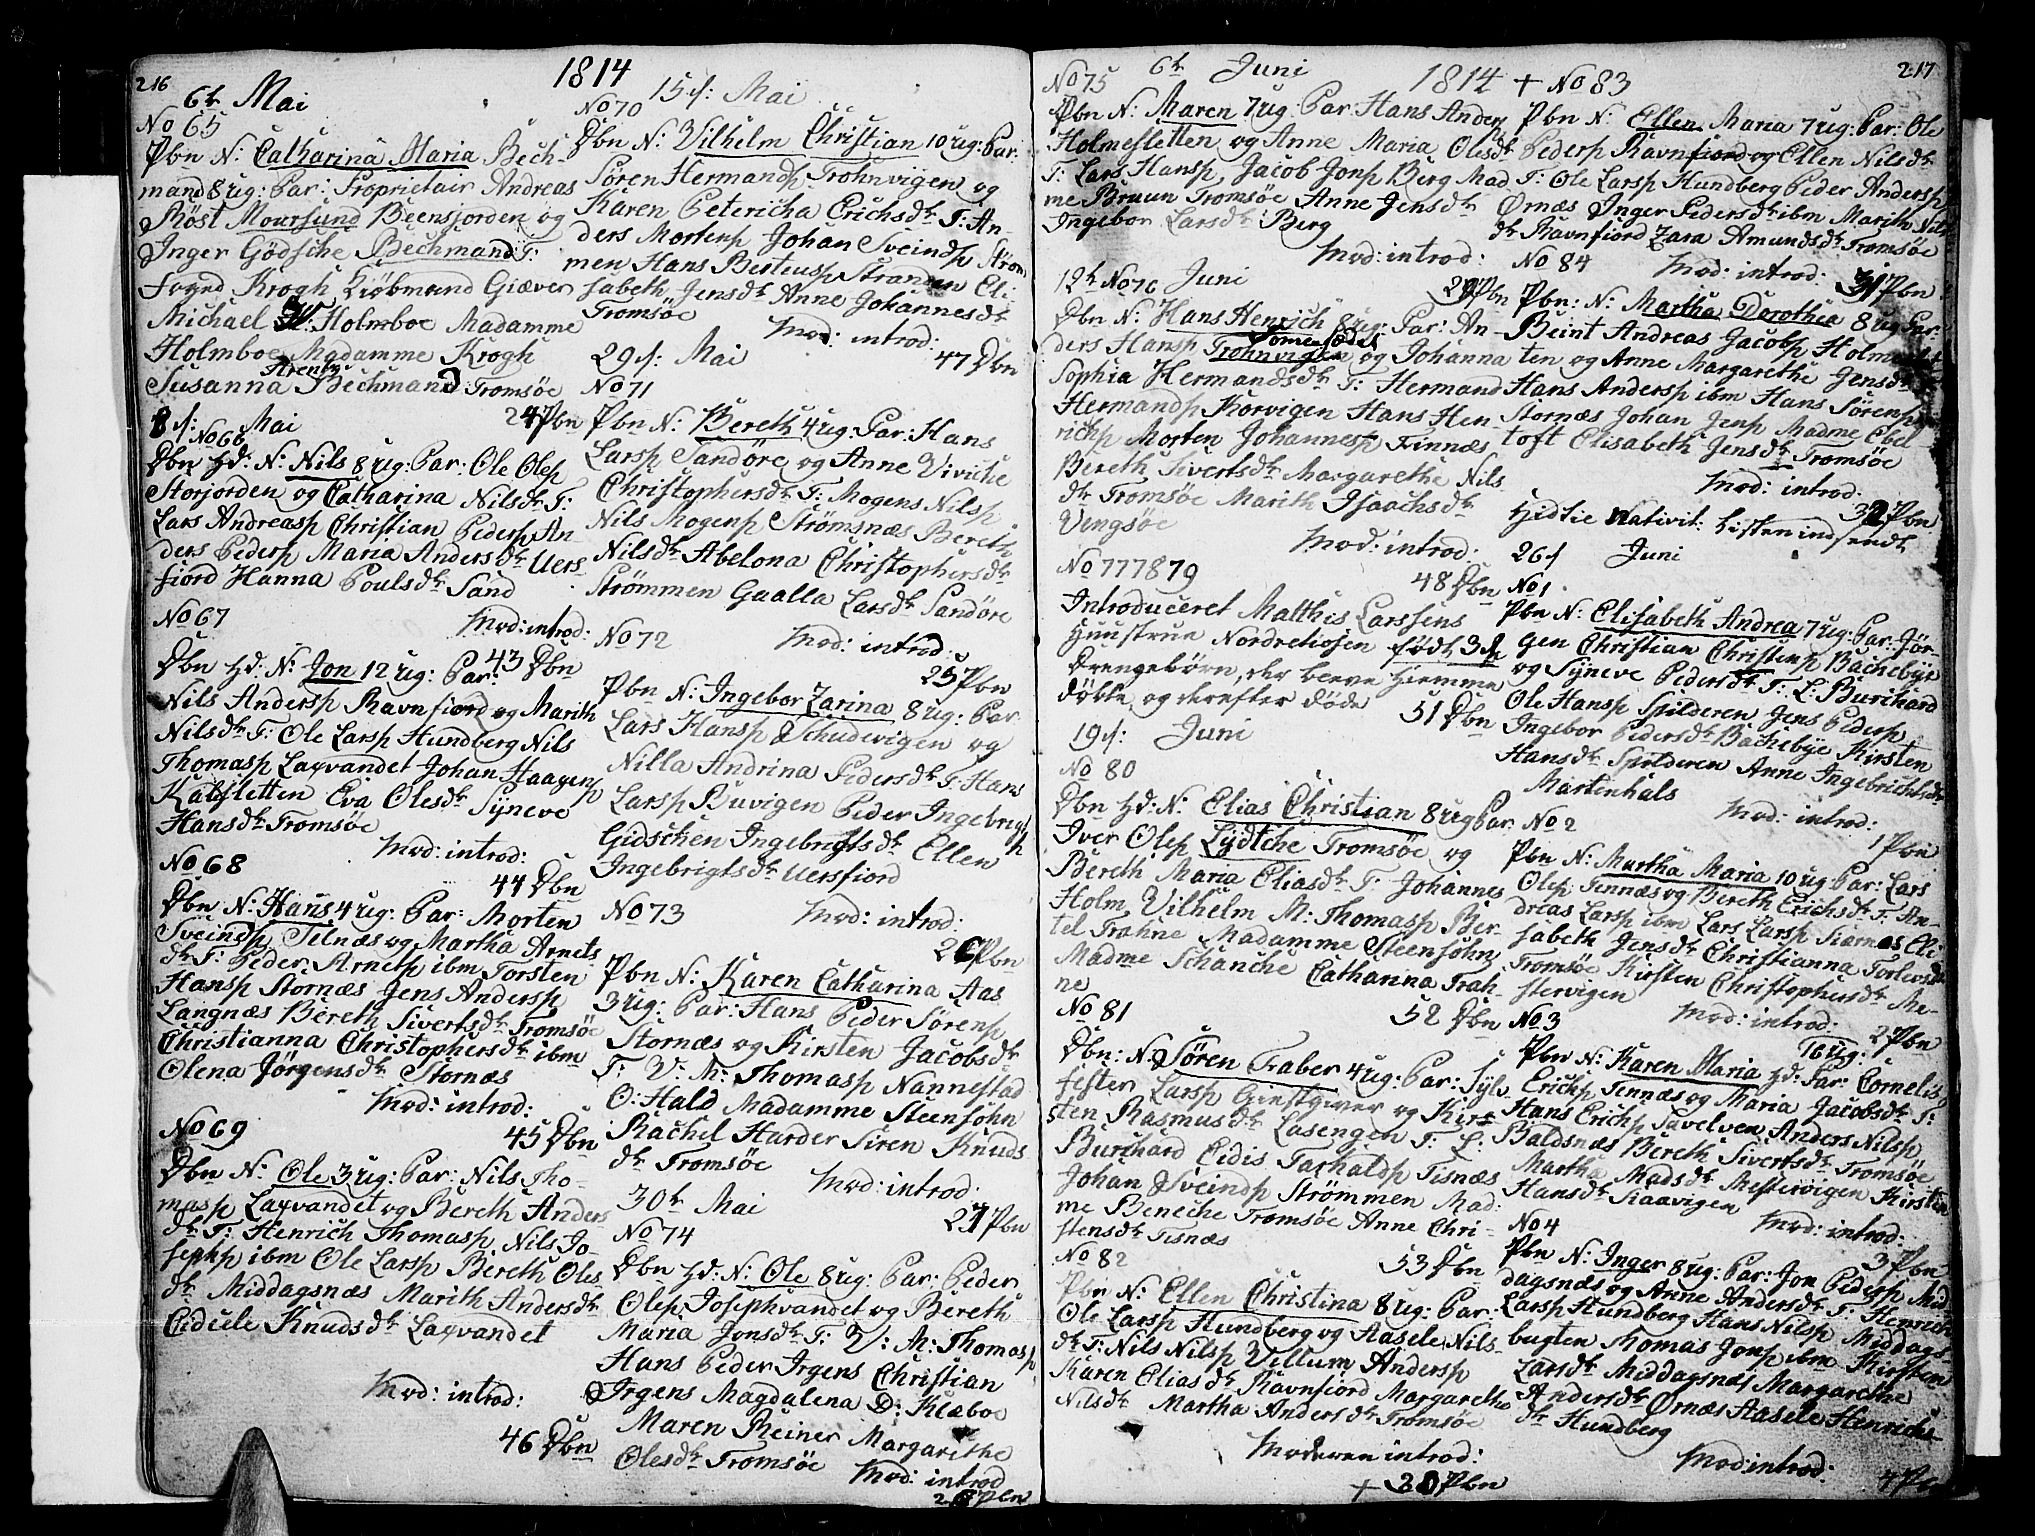 216
1814
6t Mai
No 65
Pbn N: Catharina Maria Bech-
mand 8 ug: Par: Proprietair Andreas
Röst Moursund Beensjorden og
Inger Gödsche Bechmand T:
Frynd Krogh Kiöbmand Giæver
Michael H: Holmboe Madamme
Holmboe Madamme Krogh
Arentz
Susanna Bechmand Tromsöe
24 Pbn
8 f: Mai
No 66
Dbn hd: N: Nils 8 ug: Par: Ole Olsp
Storjorden og Catharina Nilsdtr T:
Lars Andreasp Christian Pedersp An-
ders Pedersp Maria Andersdtr Uers-
fiord Hanna Poulsdtr Sand
Mod: introd:
43 Dbn
No 67
Dbn hd: N: Jon 12 ug: Par:
Nils Andersp Ravnfiord og Marith
Nilsdtr T: Ole Larsp Hundberg Nils
Thomasp Laxvandet Johan Haagensp
Kalsletten Eva Olesdtr Syneve
Hansdtr Tromsöe
Mod: introd:
44 Dbn
No 68
Dbn N: Hans 4 ug: Par: Morten
Sveindsp Selnæs og Martha Arnets
dtr T: Peder Arnetsp ibm Torsten
Hansp Stornæs Jens Andersp
Langnæs Bereth Sivertsdtr Tromsöe
Christianna Christophersdtr ibm
Olena Jörgensdtr Stornæs
Mod: introd:
45 Dbn
No 69
Dbn N: Ole 3 ug: Par: Nils Tho-
masp Laxvandet og Bereth Anders
dtr T: Henrich Thomasp Nils Jo-
sephsp ibm Ole Larsp Bereth Oles
dtr Middagsnæs Marith Andersdtr
Cidsele Knudsdtr Laxvandet
Mod: introd:
46 Dbn
15 f: Mai
No 70
Dbn N: Vilhelm Christian 10 ug: Par:
Sören Hermandsp Trohnvigen og
Karen Petericha Erichsdtr T: An-
ders Mortensp Johan Sveindsp Ström
men Hans Berteusp Stranden Eli-
sabeth Jensdtr Anne Johannesdtr
Tromsöe
Mod: introd:
47 Dbn
29 f: Mai
No 71
Pbn N: Bereth 4 ug: Par: Hans
Larsp Sandöre og Anne Viviche
Christophersdtr T: Mogens Nilsp
Nils Mogensp Strömsnæs Bereth
Nilsdtr Abelona Christophersdtr
Strömmen Gualla Larsdtr Sandöre
Mod: introd:
25 Pbn
No 72
Pbn N: Ingebor Zarina 8 ug: Par:
Lars Hansp Schudvigen og
Nilla Andrina Pedersdtr T: Hans
Larsp Buvigen Peder Ingebrigtsp
Gidschen Ingebrigtsdtr Ellen
Ingebrigtsdtr Uersfiord
Mod: introd:
26 Pbn
No 73
Pbn N: Karen Catharina Aas
3 ug: Par: Hans Peder Sörensp
Stornæs og Kirsten Jacobsdtr
T: V: M: Thomasp Nannestad
O: Hald Madamme Steensohn
Rachel Harder Siren Knuds
dtr Tromsöe
Mod: introd:
27 Pbn
30t Mai
No 74
Dbn hd: N: Ole 8 ug: Par: Peder
Olsp Josephvandet og Bereth
Maria Jonsdtr T: V: M: Thomasp
Hans Peder Irgens Christian
Irgens Magdalena D: Klæboe
Maren Reiner Margarethe
Olesdtr Tromsöe
Mod: introd
28 Pbn
217
1814
6t Juni
No 75
Pbn N: Maren 7 ug: Par: Hans Andersp
Holmesletten og Anne Maria Olesdtr
T: Lars Hansp Jacob Jonsp Berg Mad
me Bruun Tromsöe Anne Jensdtr
Ingebor Larsdtr Berg
Mod: introd:
29 Pbn
12t No 76 Juni
Dbn N: Hans Henrich 8 ug: Par: An-
ders Hansp Trohnvigen og Johanna
Sophia Hermandsdtr T: Hermand
Hermandsp Korvigen Hans Hen-
richsp Morten Johannesp Finnæs
Bereth Sivertsdtr Margarethe Nils
dtr Tromsöe Marith Isaachsdtr
Vengsöe
Mod: introd:
48 Dbn
No 77 78 79
Introduceret Matthis Larssens
Huustrue Nordretiosen födt 3de
Drengebörn, der bleve hiemme
döbte og derefter döde
51 Dbn
19 f: Juni
No 80
Dbn hd: N: Elias Christian 8 ug Par:
Iver Olsp Lydtche Tromsöe og
Bereth Maria Eliasdtr T: Johannes
Holm Vilhelm M: Thomasp Ber-
tel Trahne Madamme Steensohn
Madme Schanche Catharina Trah-
ne
52 Dbn
No 81
Dbn: N: Sören Traber 4 ug: Par: Sylv
fester Larsp Giestgiver og Kirs
ten Rasmusdtr Lasengen T: L:
Burchard Eidis Tarhaldsp Tisnæs
Johan Sveindsp Strömmen Mad-
me Beneche Tromsöe Anne Chri-
stensdtr Tisnæs
53 Dbn
No 82
Pbn N: Ellen Christina 8 ug: Par:
Ole Larsp Hundberg og Aasele Nils-
dtr T: Nils Nilsp Villum Andersp
Karen Eliasdtr Ravnfiord Margarethe
Nilsdtr Martha Andersdtr Tromsöe
Moderen introd:
+ 30 Pbn
+ No 83
Pbn N: Ellen Maria 7 ug: Par: Ole
Pedersp Ravnfiord og Ellen Nilsdtr
T: Ole Larsp Hundberg Peder Andersp
Ørnæs Inger Pedersdtr ibm Marith Nils
dtr Ravnfiord Zara Amundsdtr Tromsöe
Mod: introd:
31 Pbn
No 84
Pbn: N: Martha Dorothea 8 ug Par:
Beint Andreas Jacobsp Holmeslet
ten og Anne Margarethe Jensdtr T:
Hans Andersp ibm Hans Sörensp
Stornæs Johan Jensp Madme Ebel-
toft Elisabeth Jensdtr Tromsöe
Mod: introd:
32 Pbn
Hidtil Nativit: Listen indsendt
26 f Juni
No 1
Pbn N: Elisabeth Andrea 7 ug: Par: Jör-
gen Christian Christensp Bachebye
og Syneve Pedersdtr T: L: Burchard
Ole Hansp Spilderen Jens Pedersp
Ingebor Pedersdtr Bachebye Kirsten
Hansdtr Spilderen Anne Ingebrichtsdtr
Martenhals
Mod: introd:
1 Pbn
No 2
Pbn N: Martha Maria 10 ug: Par: Lars
Olsp Tennæs og Bereth Erichsdtr T: An-
dreas Larsp ibm Lars Larsp Siarnæs Eli-
sabeth Jensdtr Christianna Torlevsdtr
Tromsöe Kirsten Christophersdtr Me-
stervigen
Mod: introd:
2 Pbn
No 3
16 ug:
Pbn N: Karen Maria hd: Par: Cornelis
Ericksp Tennæs og Maria Jacobsdtr T:
Hans Erichsp Savelven Anders Nilsp
Baldsnæs Bereth Sivertsdtr Tromsöe
Martha Madsdtr Mestervigen Kirsten
Hansdtr Kaavigen
Mod: introd:
3 Pbn
No 4
Pbn N: Inger 8 ug: Par: Jon Pedersp Mid-
dagsnæs og Anne Andersdtr T: Henrich
Larsp Hundberg Hans Nilsp Middags-
bugten Thomas Jonsp ibm Kirsten
Larsdtr Middagsnæs Margarethe
Andersdtr Ørnæs Aasele Henrichs-
dtr Hundberg
Mod: introd:
4 Pbn